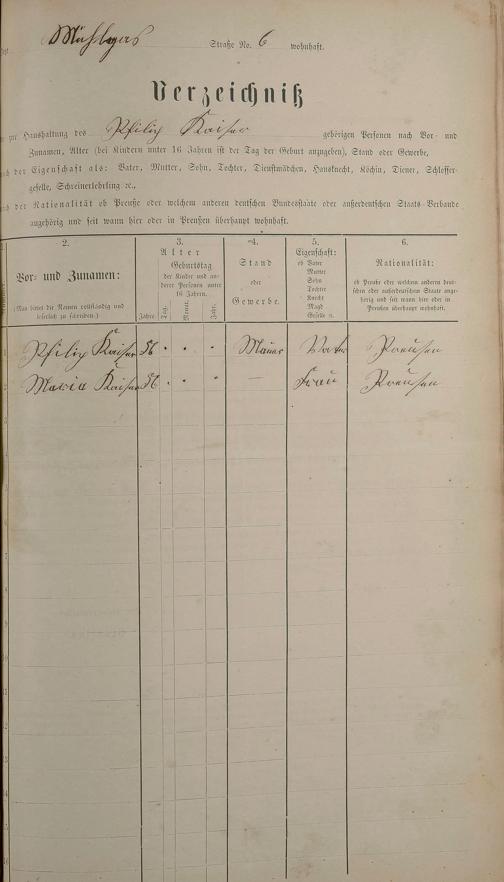 Straße No. 6 wohnhaft.
Verzeichniß
zur Haushaltung des Philip Kaiser gehörigen Personen nach Vor- und
Zunamen, Alter (bei Kindern unter 16 Jahren ist der Tag der Geburt anzugeben), Stand oder Gewerbe,
nach der Eigenschaft als: Vater, Mutter, Sohn, Tochter, Dienstmädchen, Hausknecht, Köchin, Diener, Schlosser-
geselle, Schreinerlehrling ꝛc.,
nach der Nationalität ob Preuße oder welchem anderen deutschen Bundesstaate oder außerdeutschen Staats-Verbande
angehörig und seit wann hier oder in Preußen überhaupt wohnhaft.
2.
Vor- und Zunamen:
(Man bittet die Namen vollständig und
leserlich zu schreiben.)
3.
Alter
Geburtstag
der Kinder und an-
derer Personen unter
16 Jahren.
Jahre
Tag.
Monat.
Jahr.
4.
Stand
oder
Gewerbe.
5.
Eigenschaft:
ob Vater
Mutter
Sohn
Tochter
Knecht
Magd
Geselle ꝛc.
6.
Nationalität:
ob Preuße oder welchem anderen deut-
schen oder außerdeutschen Staate ange-
hörig und seit wann hier oder in
Preußen überhaupt wohnhaft.
Philip Kaiser 56 Maurer Vater Preusen
Maria Kaiser 56 — Frau Preusen